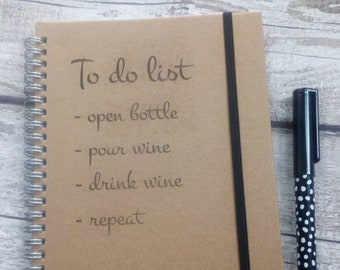 To do list
- open bottle
- pour wine
- drink wine
- repeat